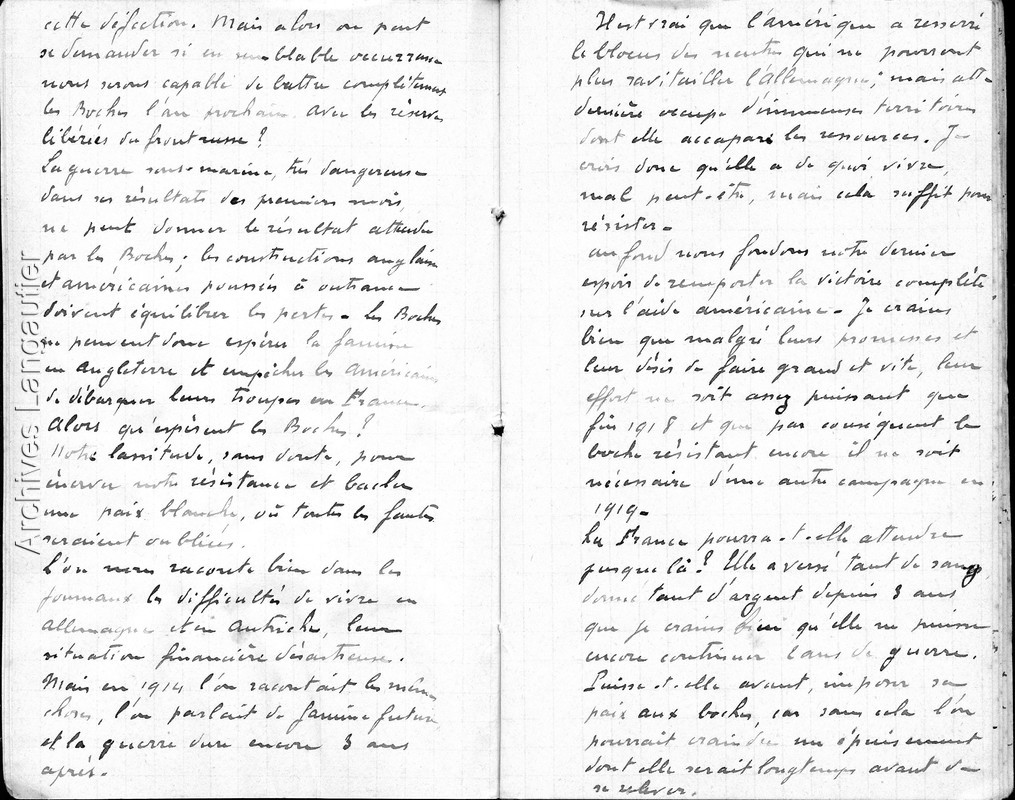 cette défection. Mais alors on peut
se demander si en semblable occurrence
nous serons capable de battre complètement
les Boches l'an prochain avec les réserves
libérées du front russe ?
La guerre sous-marine, très dangereuse
dans ses résultats des premiers mois,
ne peut donner le résultat attendu
par les Boches ; les constructions anglaises
et américaines poussées à outrance
doivent équilibrer les pertes - les Boches
ne peuvent donc espérer la famine
en Angleterre et empêcher les américains
de débarquer leurs troupes en France.
Alors qu'espèrent les Boches ?
Notre lassitude, sans doute, pour
énerver notre résistance et bacler
une paix blanche, où toutes les fautes
seraient oubliées.
L'on nous raconte bien dans les
journaux les difficultés de vivre en
allemagne et en Autriche, leur
situation financière désastreuse.
Mais en 1914 l'on racontait les mêmes
choses, l'on parlait de famine future
et la guerre dure encore 3 ans
après.
Il est vrai que l'amérique a resserré
le blocus des neutres qui ne pourront
plus ravitailler l'allemagne ; mais cette
dernière occupe d'immenses territoires
dont elle accapare les ressources. Je
crois donc qu'elle a de quoi vivre,
mal peut-être, mais cela suffit pour
résister -
au fond nous fondons notre dernier
espoir de remporter la victoire complète
sur l'aide américaine - Je crains
bien que malgré leurs promesses et
leur désir de faire grand et vite, leur
effort ne soit assez puissant que
fin 1918 et que par conséquent le
boche résistant encore il ne soit
nécessaire d'une autre campagne en
1919 -
La France pourra-t-elle attendre
jusque là ? Elle a versé tant de sang
donné tant d'argent depuis 3 ans
que je crains bien qu'elle ne puisse
encore continuer 2 ans de guerre.
Puisse-t-elle avant, imposer sa
paix aux boches, car sans cela l'on
pourrait craindre un épuisement
dont elle serait longtemps avant de
se relever.
Archives Langautier